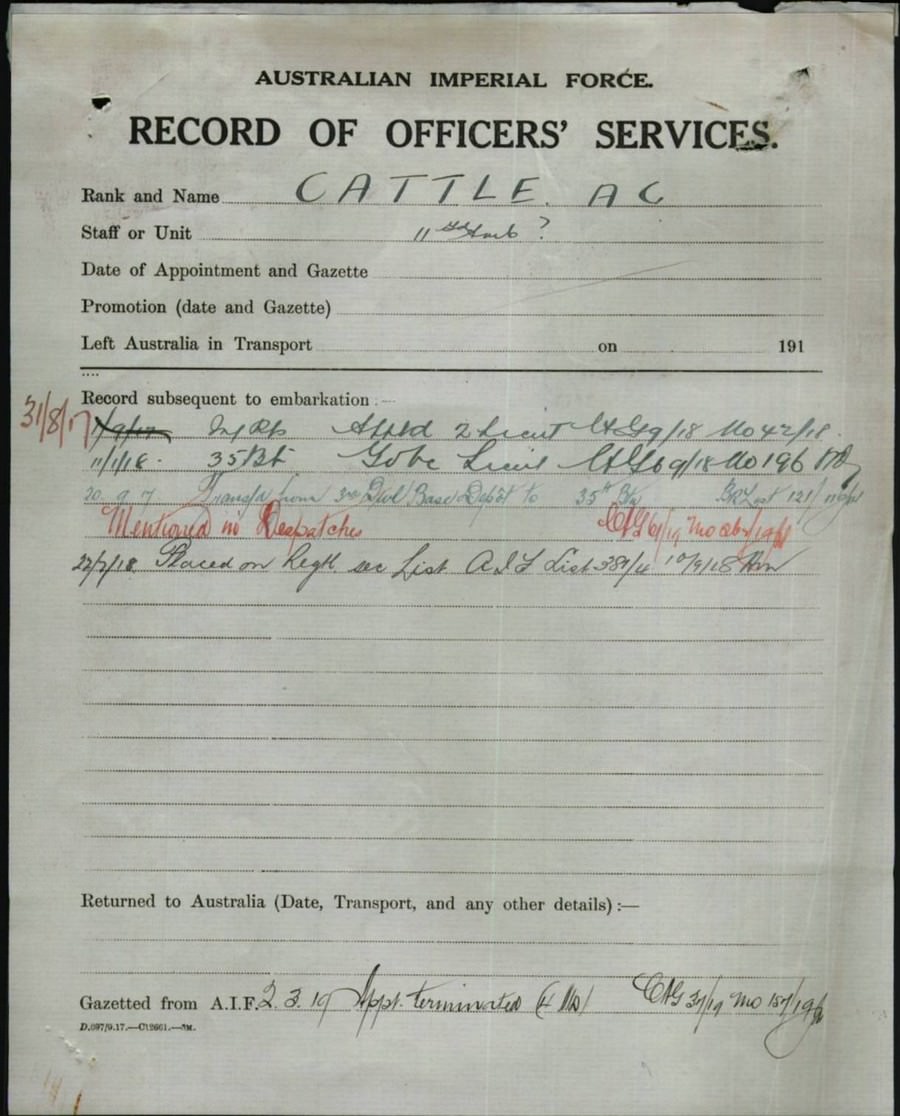 AUSTRALIAN IMPERIAL FORCE.
RECORD OF OFFICERS' SERVICES.
Rank and Name CATTLE. A C
Staff or Unit 11th ?
Date of Appointment and Gazette
Promotion (date and Gazette)
Left Australia in Transport on 191
Record subsequent to embarkation :—
31/8/17 1/9/17 2 Lieut CAG 9/18 Mo 42/18
11/1/18. 35 Bt To be Lieut CAG 69/18 Mo 196
20.9.17 Transfd from 3rd Divl Base Depôt to 35th Bn
Mentioned in Despatches CAG 61/19 Mo
22/7/18. Placed on Regtl sec List A.I.F List 10/9/18
Returned to Australia (Date, Transport, and any other details) :—
Gazetted from A.I.F. 2.3.19 Appt. terminated CAG Mo
D.697/9.17.—C.12661.—5M.